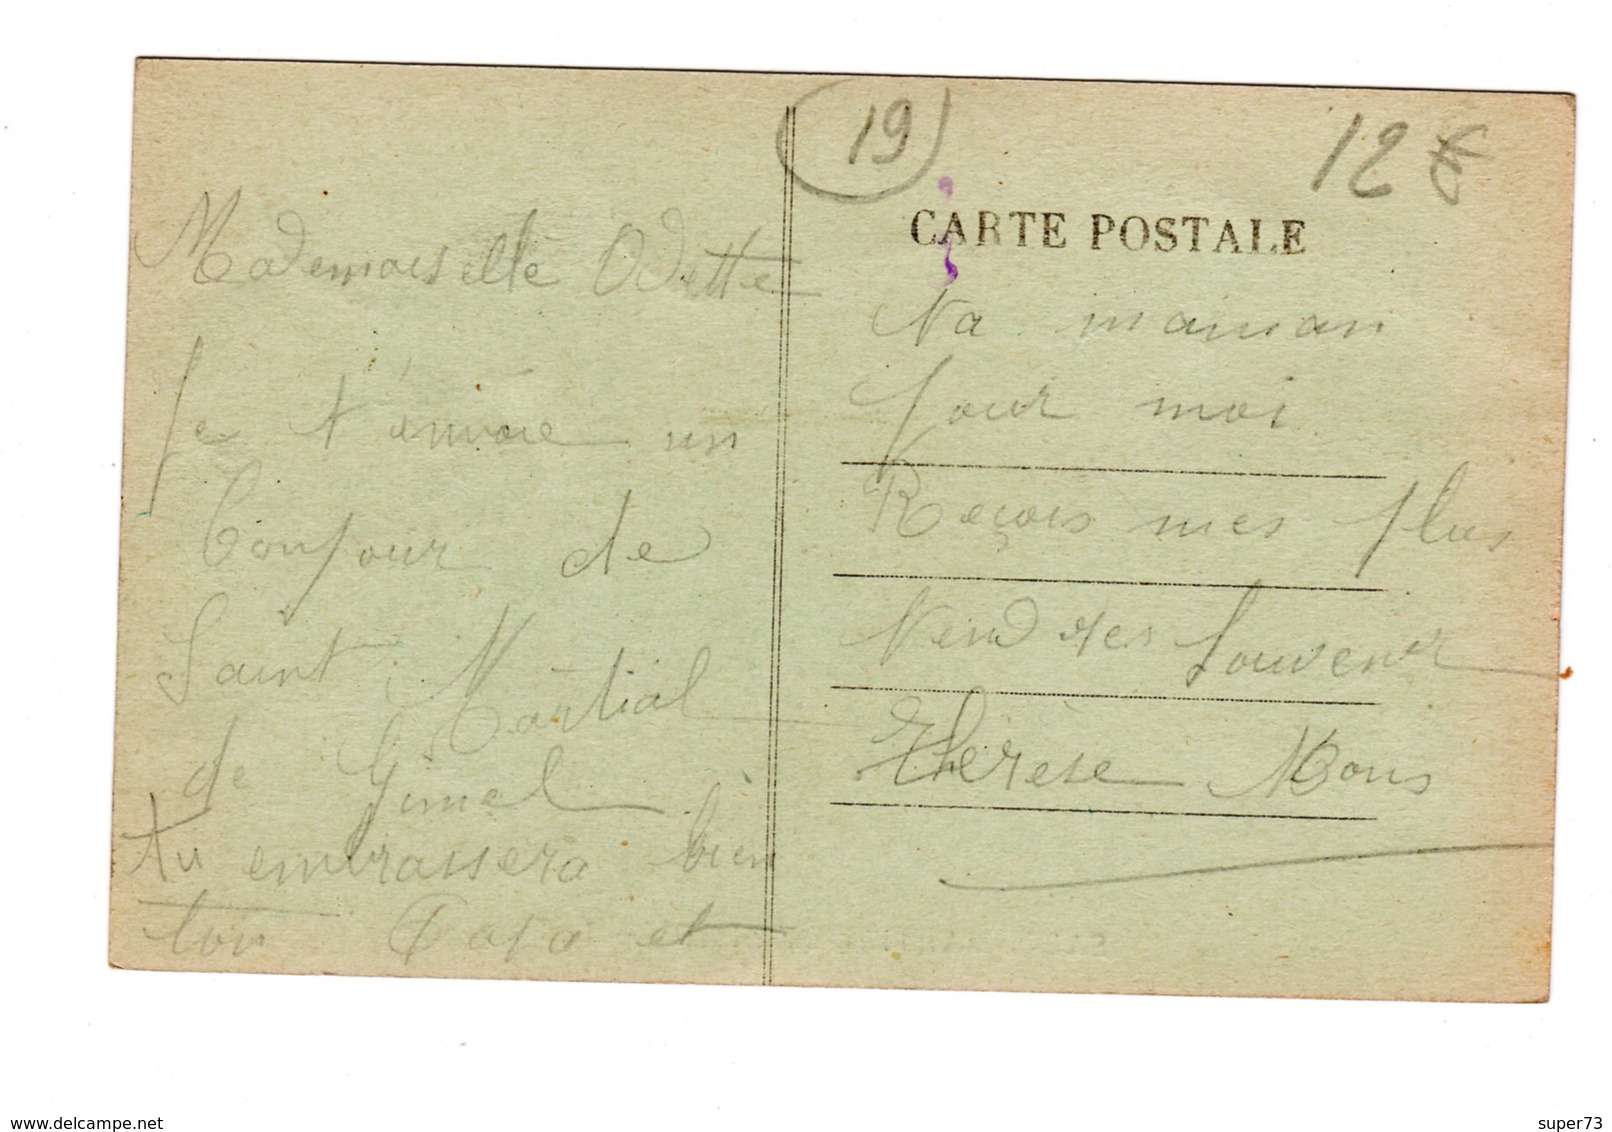 19
12 €
CARTE POSTALE
Mademoiselle Odette
Je t'envoie un
bonjour de
Saint Martial
de Gimel
tu embrassera bien
ton Papa et
ta maman
pour moi
Reçois mes plus
tendres souvenir
Thérèse Mons
www.delcampe.net
super73